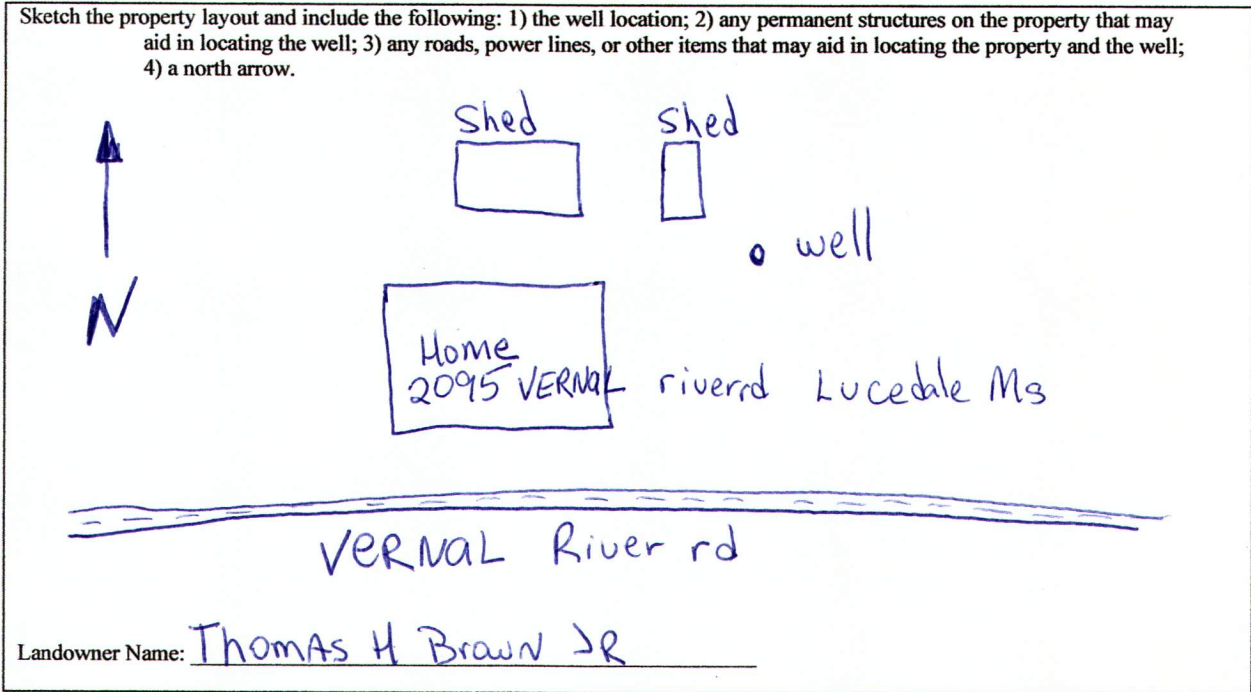 Sketch the property layout and include the following: 1) the well location; 2) any permanent structures on the property that may
aid in locating the well; 3) any roads, power lines, or other items that may aid in locating the property and the well;
4) a north arrow.
Shed Shed
well
N
Home
2095 VERNaL riverrd Lucedale Ms
VeRNaL River rd
Landowner Name: ThomAs H BrowN JR